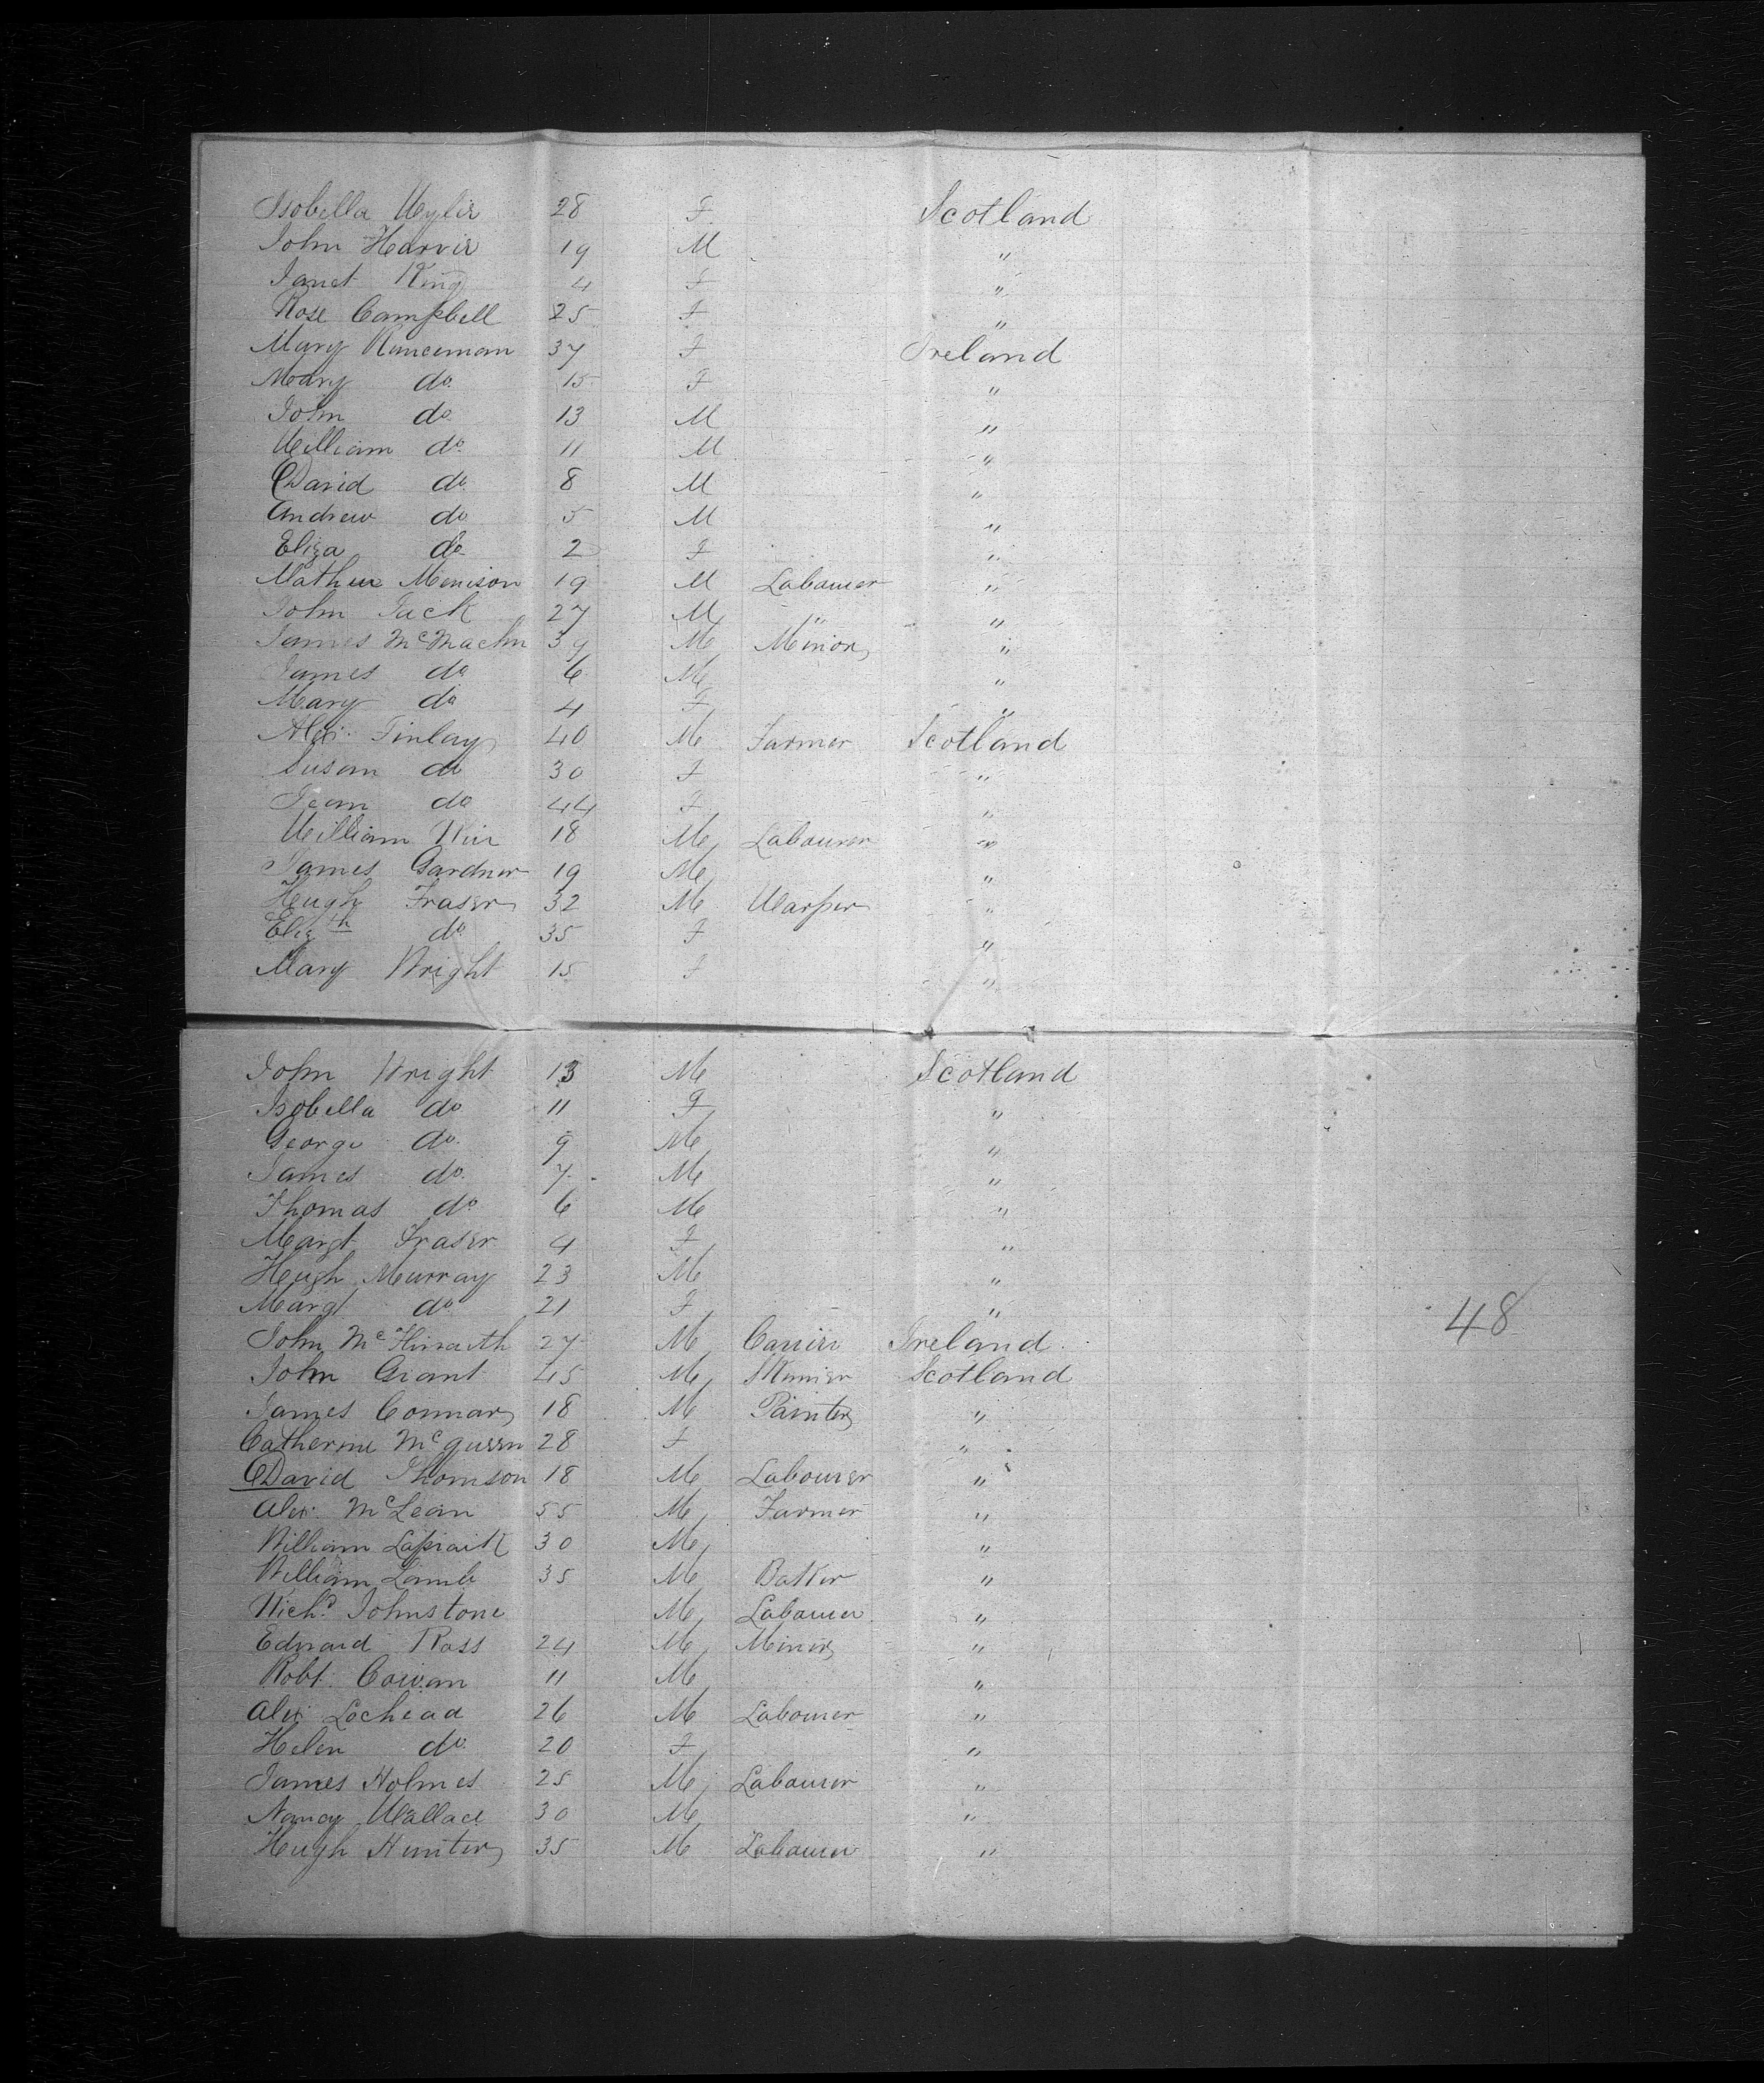 Isobella Wylie 28 F Scotland
John Harvie 19 M "
Janet King 4 F "
Rose Campbell 25 F "
Mary Runceman 37 F Ireland
Mary do 15 F "
John do 13 M "
William do 11 M "
David do 8 M "
Andrew do 5 M "
Eliza do 2 F "
Mathew Morrison 19 M Labourer "
John Jack 27 M " "
James 39 M Minor "
James do 6 M "
Mary do 4 F "
Alex. Finlay 40 M Farmer Scotland
Susan do 30 F "
Jean do 44 F "
William Weir 18 M Labourer "
James Gardner 19 M "
Hugh Fraser 32 M Warper "
Elizth do 35 F "
Mary Wright 15 F "
John Wright 13 M Scotland
Isobella do 11 F "
George do 9 M "
James do 7 M "
Thomas do 6 M "
Margt Fraser 4 F "
Hugh Murray 23 M "
Margt do 21 F "
48
John 27 M Ireland
John Grant 45 M Skinner Scotland
James Connar 18 M Painter "
Catherine 28 F "
David Thomson 18 M Labourer "
Alex. McLean 55 M Farmer "
William Lapraik 30 M "
William Lamb 35 M Baker "
Johnstone M Labourer "
Edward Ross 24 M Miner "
Robt. Cowan 11 M "
Alex Lochead 26 M Labourer "
Helen do 20 F "
James Holmes 25 M Labourer "
Nancy Wallace 30 M "
Hugh Hunter 35 M Labourer "